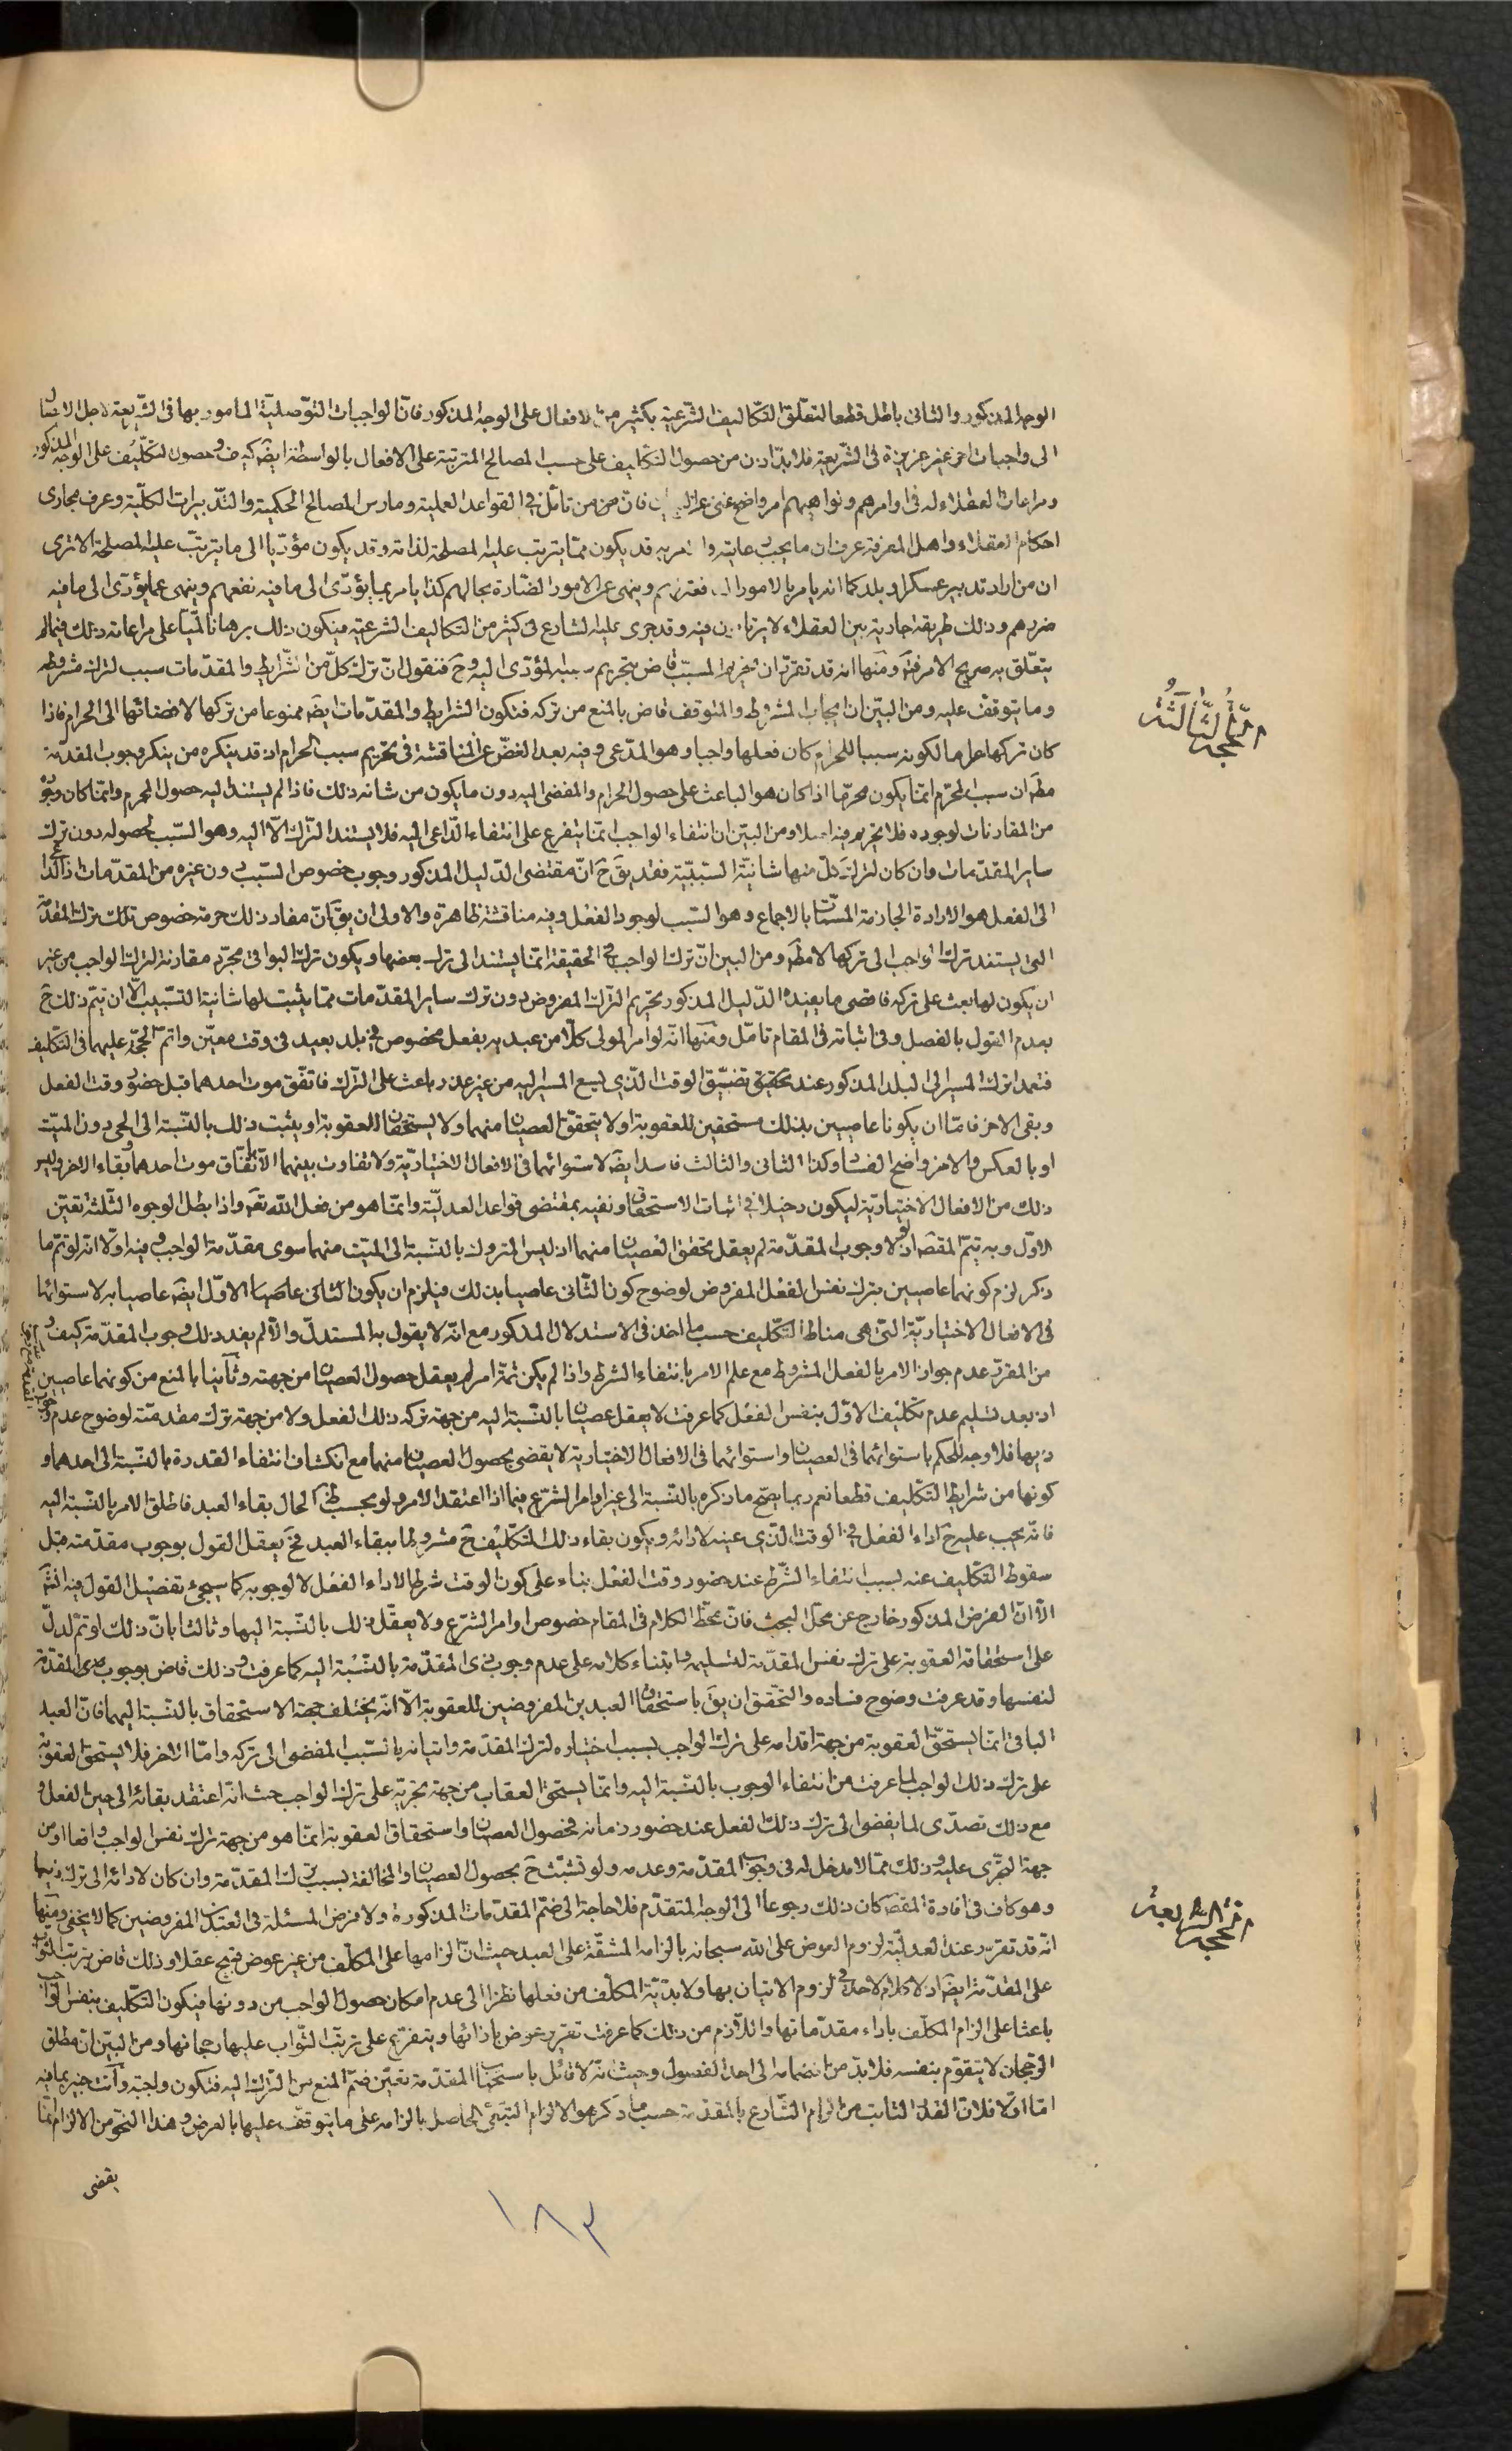 الوجه المذكور والثاني باطل قطعا لتعلق التكاليف الشرعية بكثير من الافعال على الوجه المذكور فان الواجبات التوصلية المامور بها في الشريعة لاجل الايصال
الى واجبات اخر غير عزيزة في الشريعة فلا بد اذن من حصول التكليف على حسب المصالح المترتبة على الافعال بالواسطة ايضا كيف وحصول التكليف على الوجه المذكور
ومراعات العقلاء له في اوامرهم ونواهيهم امر واضح غني عن البيان فان من تامل في القواعد العملية ومارس المصالح الحكمية والتدبيرات الكلية وعرف مجاري
احكام العقلاء واهل المعرفة عرف ان ما يجب رعايته والامر به قد يكون مما يترتب عليه المصلحة لذاته وقد يكون مؤديا الى ما يترتب عليه المصلحة الا ترى
ان من اراد تدبير عسكر او بلد كما انه يامر بالامور النافعة لهم وينهى عن الامور الضارة بحالهم كذا يامر بما يؤدي الى ما فيه نفعهم وينهى عما يؤدي الى ما فيه
ضررهم وذلك طريقة جارية بين العقلاء لا يرتابون فيه وقد جرى عليه الشارع في كثير من التكاليف الشرعية فيكون ذلك برهانا لميا على مراعاته ذلك فيما لم
يتعلق به صريح الامر فتم ومنها انه قد تقرر ان تحريم المسبب قاض بتحريم سببه المؤدي اليه وح فنقول ان ترك كل من الشرايط والمقدمات سبب لترك مشروطه
وما يتوقف عليه ومن البين ان ايجاب المشروط والمتوقف قاض بالمنع من تركه فتكون الشرايط والمقدمات ايضا ممنوعا من تركها لافضائها الى الحرام فاذا
كان تركها حراما لكونه سببا للحرام كان فعلها واجبا وهو المدعى وفيه بعد الغض عن المناقشة في تحريم سبب الحرام اذ قد ينكره من ينكر وجوب المقدمة
مطَ ان سبب المحرم انما يكون محرما اذا كان هو الباعث على حصول الحرام والمفضي اليه دون ما يكون من شانه ذلك فاذا لم يستند اليه حصول المحرم وانما كان وجوده
من المقارنات لوجوده فلا تحريم فيه اصلا ومن البين ان انتفاء الواجب انما يتفرع على انتفاء الداعي اليه فلا يستند الترك الا اليه وهو السبب لحصوله دون ترك
ساير المقدمات وان كان لترك كل منها شانية السببية فقد يقَ حَ ان مقتضى الدليل المذكور وجوب خصوص السبب دون غيره من المقدمات اذ الداعي
الى الفعل هو الارادة الجازمة المسمات بالاجماع وهو السبب لوجود الفعل وفيه مناقشة ظاهرة والاولى ان يقَ ان مفاد ذلك حرمة خصوص تلك ترك المقدمة
التي يستند ترك الواجب الى تركها لا مطَ ومن البين ان ترك الواجب في الحقيقة انما يستند الى ترك بعضها ويكون ترك البواقي مجرد مقارنة لترك الواجب من غير
ان يكون لها بعث على تركه فاقصى ما يفيده الدليل المذكور تحريم الترك المفروض دون ترك ساير المقدمات مما يثبت لها شانية التسبيب الا ان يتم ذلك حَ
بعدم القول بالفصل وفي اثباته في المقام تامل ومنها انه لو امر المولى كلا من عبديه بفعل مخصوص في بلد بعيد في وقت معين واتم الحجة عليهما في التكليف
فتعمدا ترك المسير الى البلد المذكور عند تحقق تضيق الوقت الذي يسع المسير اليه من غير عذر باعث على الترك فاتفق موت احدهما قبل حضور وقت الفعل
وبقي الاخر فاما ان يكونا عاصيين بذلك مستحقين للعقوبة او لا يتحقق العصيان منهما ولا يستحقان للعقوبة او يثبت ذلك بالنسبة الى الحي دون الميت
او بالعكس والاخر واضح الفساد وكذا الثاني والثالث فاسد ايضا لاستوائهما في الافعال الاختيارية ولا تفاوت بينهما الا باتفاق موت احدهما وبقاء الاخر وليس
ذلك من الافعال الاختيارية ليكون دخيلا في اثبات الاستحقاق او نفيه بمقتضى قواعد العدلية وانما هو من فعل الله تعَ واذا بطل الوجوه الثلثة تعين
الاول وبه يتم المقصَ اذ لو لا وجوب المقدمة لم يعقل تحقق العصيان منهما اذ ليس المتروك بالنسبة الى الميت منهما سوى مقدمة الواجب وفيه اولا انه لو تم ما
ذكر لزم كونهما عاصيين بترك نفس الفعل المفروض لوضوح كون الثاني عاصيا بذلك فيلزم ان يكون الثاني عاصيا الاول ايضا عاصيا به لاستوائهما
في الافعال الاختيارية التي هي مناط التكليف حسب ما اخذ في الاستدلال المذكور مع انه لا يقول به المستدل والا لم يفد ذلك وجوب المقدمة كيف و
من المقرر عدم جواز الامر بالفعل المشروط مع علم الامر بانتفاء الشرط واذا لم يكن ثمة امر لم يعقل حصول العصيان من جهته وثانيا بالمنع من كونهما عاصيين
اذ بعد تسليم عدم تكليف الاول بنفس الفعل كما عرفت لا يعقل عصيان بالنسبة اليه من جهة تركه ذلك الفعل ولا من جهة ترك مقدمته لوضوح عدم وجوب
ذيها فلا وجه للحكم باستوائهما في العصيان واستوائهما في الافعال الاختيارية لا يقضي بحصول العصيان منهما مع انكشاف انتفاء القدرة بالنسبة الى احدهما و
كونها من شرايط التكليف قطعا نعم ربما يصح ما ذكره بالنسبة الى غير اوامر الشرع فيما اذا اعتقد الامر ولو بحسب ظَ الحال بقاء العبد فاطلق الامر بالنسبة اليه
فانه يجب عليه حَ اداء الفعل في الوقت الذي عينه لادائه ويكون بقاء ذلك التكليف حَ مشروطا ببقاء العبد فحَ يعقل القول بوجوب مقدمته قبل
سقوط التكليف عنه بسبب انتفاء الشرط عند حضور وقت الفعل بناء على كون الوقت شرطا لاداء الفعل لا لوجوبه كما سيجيء تفصيل القول فيه انشَ
الا ان الفرض المذكور خارج عن محل البحث فان محط الكلام في المقام خصوص اوامر الشرع ولا يعقل ذلك بالنسبة اليها وثالثا بان ذلك لو تم لدل
على استحقاقه العقوبة على ترك نفس المقدمة لتسليمه وابتناء كلامه على عدم وجوب ذي المقدمة بالنسبة اليه كما عرفت وذلك قاض بوجوب المقدمة
لنفسها وقد عرفت وضوح فساده والتحقيق ان يقَ باستحقاق العبدين المفروضين للعقوبة الا انه يختلف جهة الاستحقاق بالنسبة اليهما فان العبد
الباقي انما يستحق العقوبة من جهة اقدامه على ترك الواجب بسبب اختياره لترك المقدمة واتيانه بالسبب المفضي الى تركه واما الاخر فلا يستحق العقوبة
على ترك ذلك الواجب لما عرفت من انتفاء الوجوب بالنسبة اليه وانما يستحق العقاب من جهة تجريه على ترك الواجب حيث انه اعتقد بقائه الى حين الفعل و
مع ذلك تصدى لما يفضي الى ترك ذلك الفعل عند حضور زمانه فحصول العصيان واستحقاق العقوبة انما هو من جهة ترك نفس الواجب واقعا او من
جهة التجري عليه وذلك مما لا مدخل له في وجوب المقدمة وعدمه ولو تشبث حَ بحصول العصيان والمخالفة بسبب ترك المقدمة وان كان لادائه الى ترك ذيها
وهو كاف في افادة المقصَ كان ذلك رجوعا الى الوجه المتقدم فلا حاجة الى ضم المقدمات المذكورة ولا فرض المسئلة في العبدين المفروضين كما لا يخفى ومنها
انه قد تقرر عند العدلية لزوم العوض على الله سبحانه بالزامه المشقة على العبد حيث ان الزامها على المكلف من غير عوض قبيح عقلا وذلك قاض بترتب الثواب
على المقدمة ايضا اذ لا كلام لاحد في لزوم الاتيان بها ولا بدية المكلف من فعلها نظرا الى عدم امكان حصول الواجب من دونها فيكون التكليف بنفس الواجب
باعثا على الزام المكلف باداء مقدماتها واللازم من ذلك كما عرفت تقرير عوض بازائها ويتفرع على ترتب الثواب عليها رجحانها ومن البين ان مطلق
الرجحان لا يتقوم بنفسه فلا بد من انضمامه الى احد الفصول وحيث انه لا قائل باستحباب المقدمة تعين ضم المنع من الترك اليه فتكون واجبة وانت خبير بما فيه
اما اولا فلان القدر الثابت من الزام الشارع بالمقدمة حسب ما ذكر هو الالزام التبعي الحاصل بالزامه على ما يتوقف عليها بالعرض وهذا النحو من الالزام انما
يقضي
الحجة الثالثة
الحجة الرابعة
١٨٣